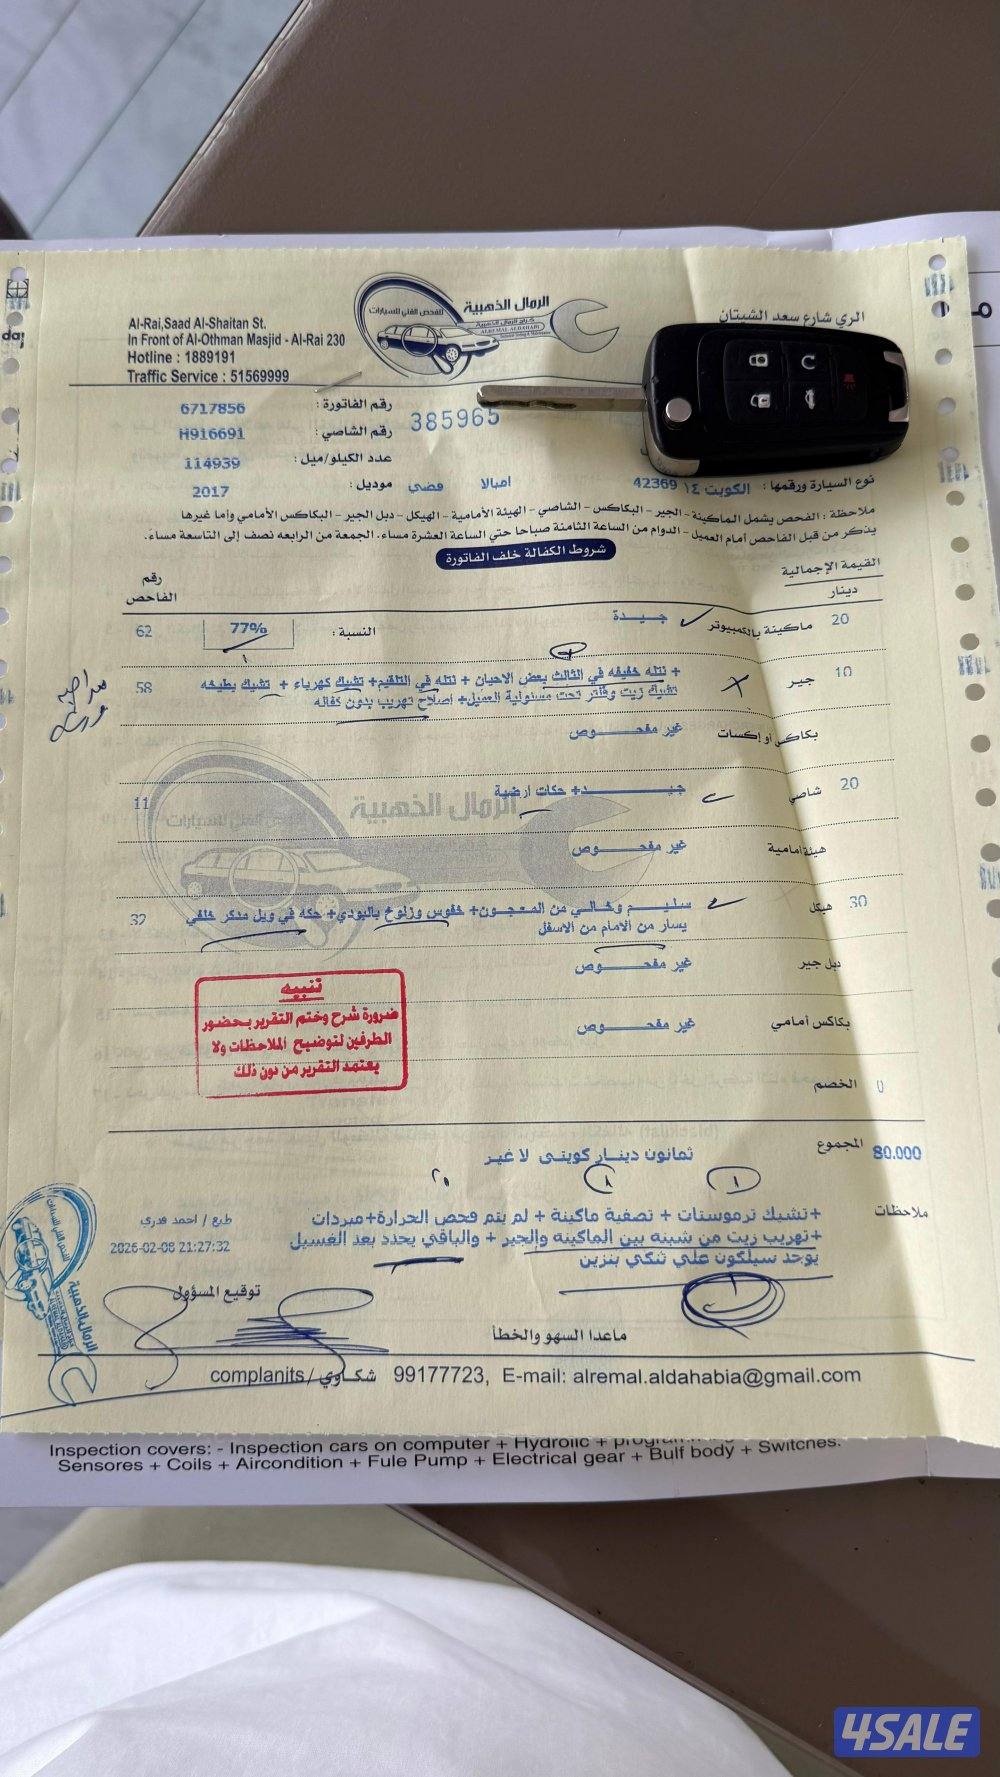 الرمال الذهبية
للفحص الفني للسيارات
كراج الرمال الذهبية
ALREMAL ALDAHABI
الري شارع سعد الشيتان
Al-Rai,Saad Al-Shaitan St.
In Front of Al-Othman Masjid - Al-Rai 230
Hotline : 1889191
Traffic Service : 51569999
رقم الفاتورة : 6717856
385965
رقم الشاصي : H916691
عدد الكيلو/ميل : 114939
نوع السيارة ورقمها : الكويت ١٤ 42369 امبالا فضي موديل : 2017
ملاحظة : الفحص يشمل الماكينة - الجير - البكاكس - الشاصي - الهيئة الأمامية - الهيكل - دبل الجير - البكاكس الأمامي وأما غيرها
يذكر من قبل الفاحص أمام العميل - الدوام من الساعة الثامنة صباحا حتي الساعة العشرة مساء. الجمعة من الرابعه نصف إلى التاسعة مساء.
شروط الكفالة خلف الفاتورة
القيمة الإجمالية
دينار
رقم
الفاحص
20 ماكينة بالكمبيوتر جيدة النسبة : 77% 62
10 جير + نتله خفيفه في الثالث بعض الاحيان + نتله في التلقيم+ تشيك كهرباء + تشيك بطيخه 58
تشيك زيت وفلتر تحت مسئولية العميل+ اصلاح تهريب بدون كفاله
بكاكس أو إكسات غير مفحوص
20 شاصي جيد+ حكات ارضية 11
هيئة امامية غير مفحوص
30 هيكل سليم وخالي من المعجون+ خفوس وزلوخ بالبودي+ حكه في ويل مدكر خلفي 32
يسار من الامام من الاسفل
دبل جير غير مفحوص
بكاكس أمامي غير مفحوص
تنبيه
ضرورة شرح وختم التقرير بحضور
الطرفين لتوضيح الملاحظات ولا
يعتمد التقرير من دون ذلك
الخصم 0
المجموع 80.000
ثمانون دينار كويتى لا غير
ملاحظات
+تشيك ترموستات + تصفية ماكينة + لم يتم فحص الحرارة+مبردات
+تهريب زيت من شينه بين الماكينه والجير + والباقي يحدد بعد الغسيل
يوجد سيلكون علي تنكي بنزين
طبع / احمد قدري
2026-02-08 21:27:32
توقيع المسؤول
ماعدا السهو والخطأ
complanits / شكاوي 99177723, E-mail: alremal.aldahabia@gmail.com
Inspection covers: - Inspection cars on computer + Hydrolic +
Sensores + Coils + Aircondition + Fule Pump + Electrical gear + Bulf body + Switches.
4SALE